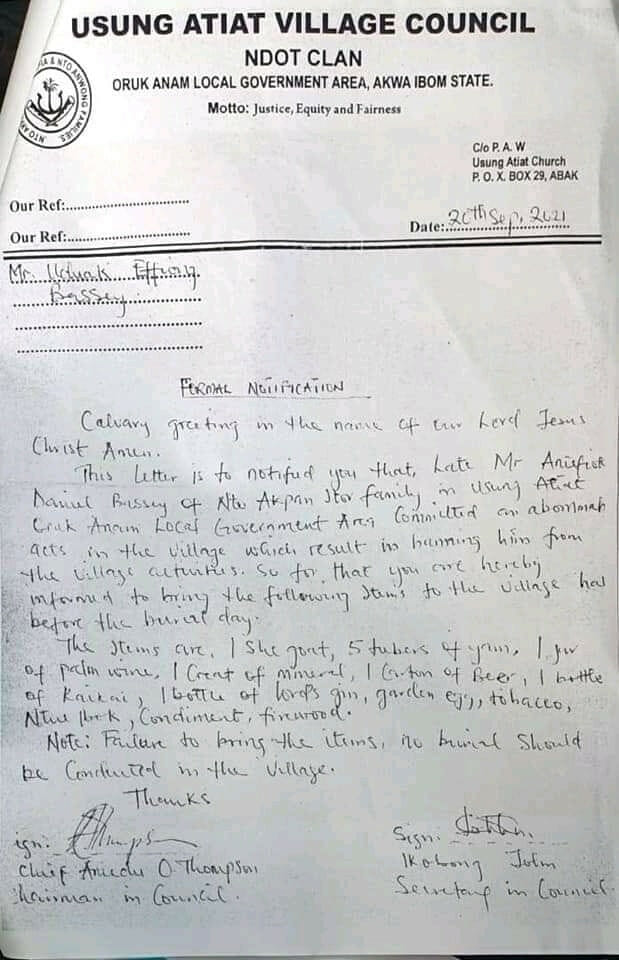 USUNG ATIAT VILLAGE COUNCIL
NDOT CLAN
ORUK ANAM LOCAL GOVERNMENT AREA, AKWA IBOM STATE.
Motto: Justice, Equity and Fairness
C/o P. A. W
Usung Atiat Church
P. O. X. BOX 29, ABAK
Our Ref:
Our Ref:
Date: 20th Sep, 2021
Mr. Uduak Effiong
Bassey
FORMAL NOTIFICATION
Calvary greeting in the name of our Lord Jesus
Christ Amen.
This Letter is to notified you that, Late Mr Aniefiok
Daniel Bassey of Nto Akpan Itor family in Usung Atiat
Oruk Anam Local Government Area Committed an abominab
acts in the village which result in banning him from
the village activities. So for that you are hereby
informed to bring the following Items to the village hal
before the burial day.
The Items are, 1 She goat, 5 tubers of yam, 1 jar
of palm wine, 1 Creat of mineral, 1 Carton of Beer, 1 bottle
of Kaikai, 1 bottle of lords gin, garden egg, tobacco,
Condiment, firewood.
Note: Failure to bring the items, no burial should
be Conducted in the village.
Thanks
ign:
Chief Aniedu O. Thompson
hairman in Council.
Sign:
Ikobong John
Secretary in Council.